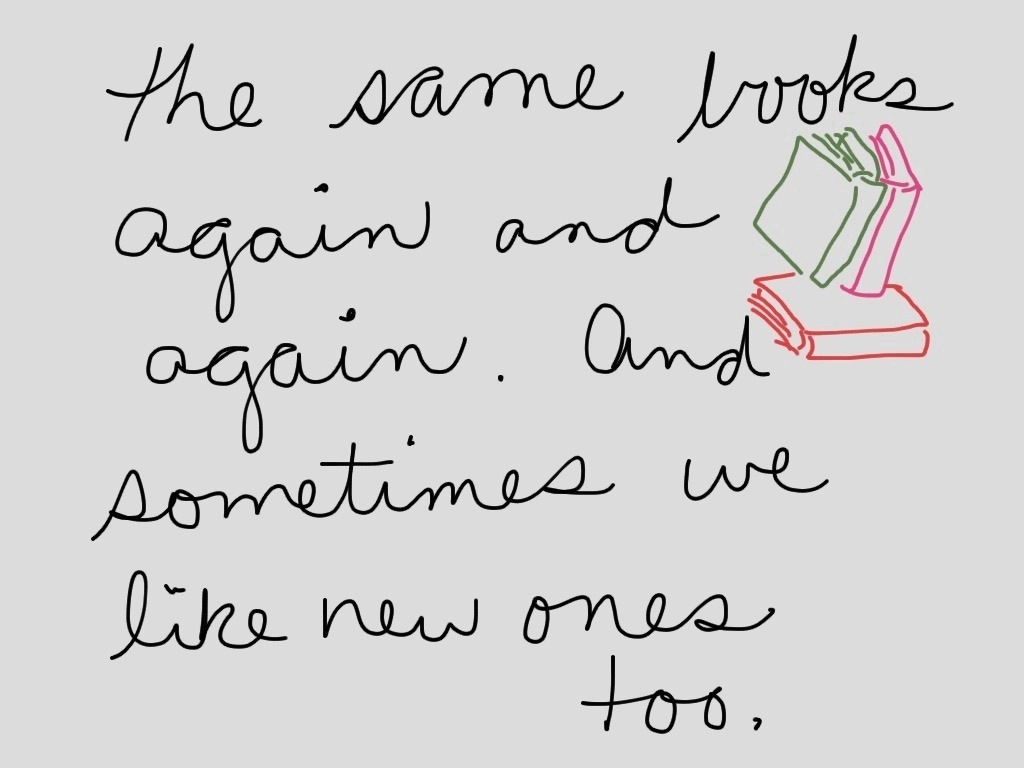 the same books
again and
again. And
sometimes we
like new ones
too.